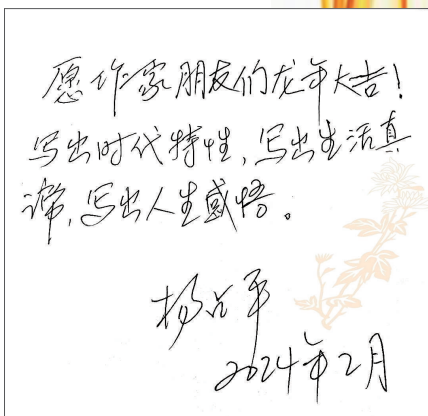 愿作家朋友们龙年大吉!
写出时代特性,写出生活真
谛,写出人生感悟。
杨占平
2024年2月